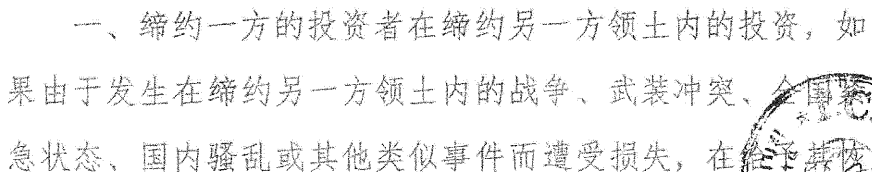 一、缔约一方的投资者在缔约另一方领土内的投资，如
果由于发生在缔约另一方领土内的战争、武装冲突、全国紧
急状态、国内骚乱或其他类似事件而遭受损失，在给予其恢